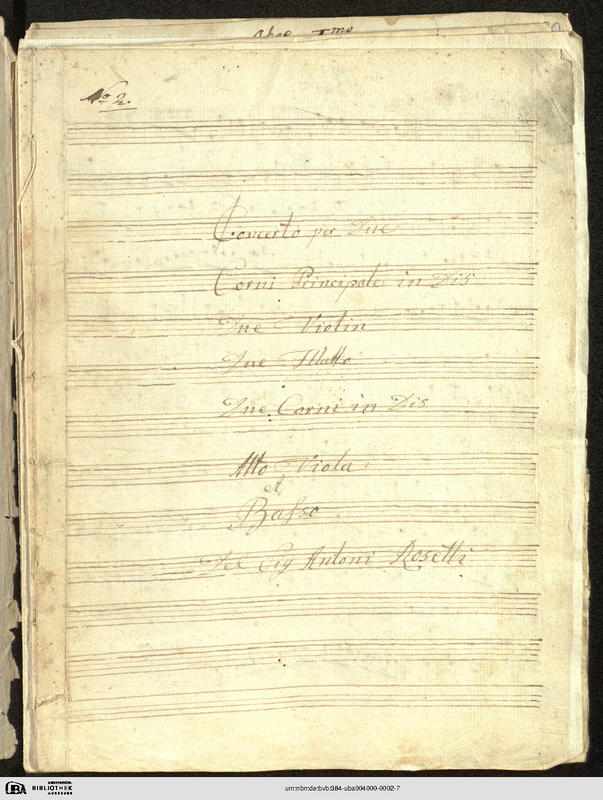 Oboe Imo
No 2.
Concerto per Due
Corni Principale in Dis
Due Violin
Due Flauto
Due Corni in Dis
Alto Viola
et
Basso
Del Sig Antoni Rosetti
UBA
UNIVERSITÄTS-
BIBLIOTHEK
AUGSBURG
urn:nbn:de:bvb:384-uba004000-0002-7